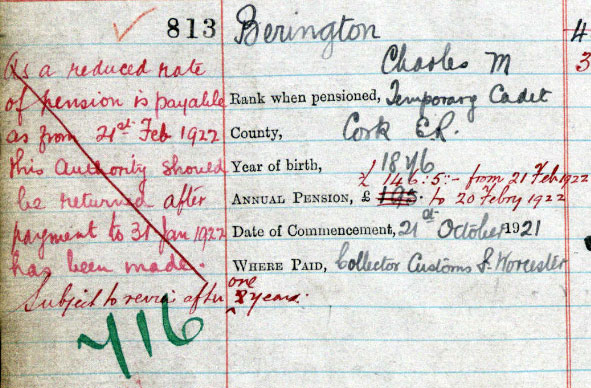 813 Berington 4
Charles M 3
As a reduced rate
of pension is payable Rank when pensioned, Temporary Cadet
as from 21st Feb 1922 County, Cork E.R.
this Authority should Year of birth, 1876
£146:5:- from 21 Feb 1922
be returned after ANNUAL PENSION, £ 195. to 20 Febry 1922
payment to 31 Jan 1922 Date of Commencement, 21st October 1921
has been made. WHERE PAID, Collector Customs & Worcester
one
Subject to after years:
716